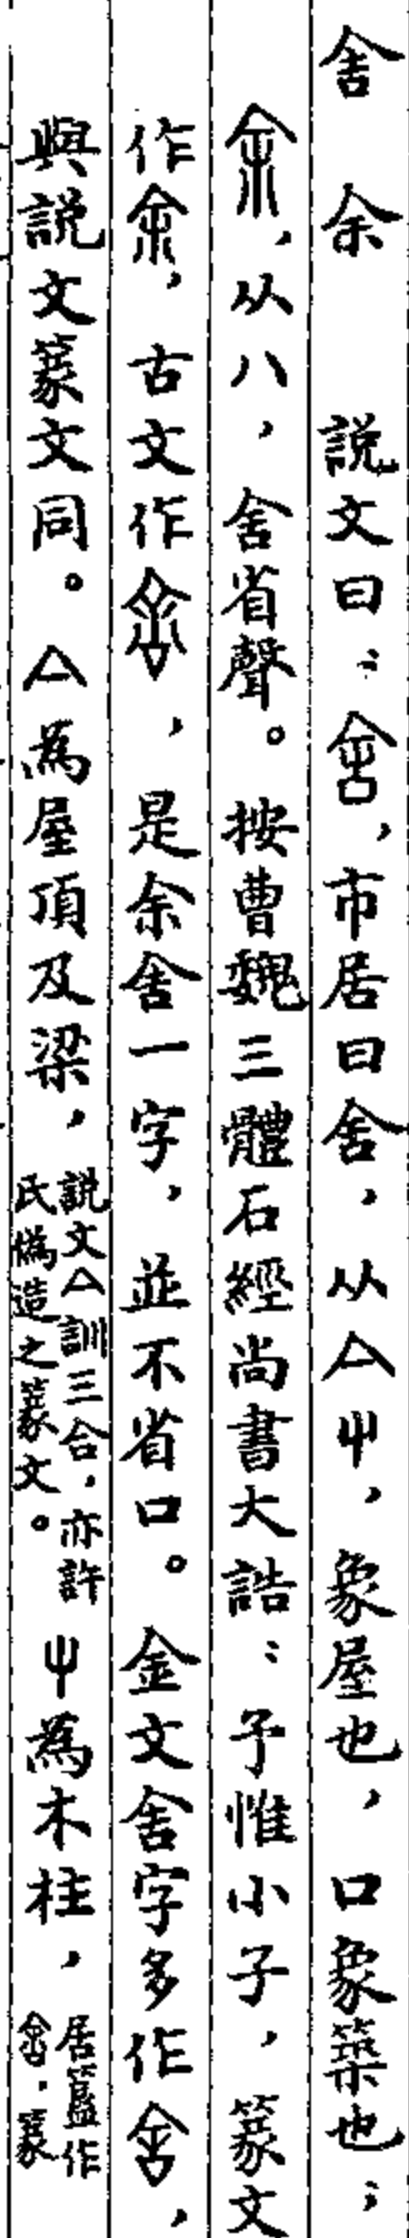 舍 余 說文曰：𠎳，市居曰舍，从亼屮，象屋也，口象築也；
，从八，舍省聲。按曹魏三體石經尚書大誥：予惟小子，篆文
作，古文作，是余舍一字，並不省口。金文舍字多作，
與說文篆文同。亼為屋頂及梁，說文亼訓三合，亦許
氏偽造之篆文。屮為木柱，居簠作
，篆